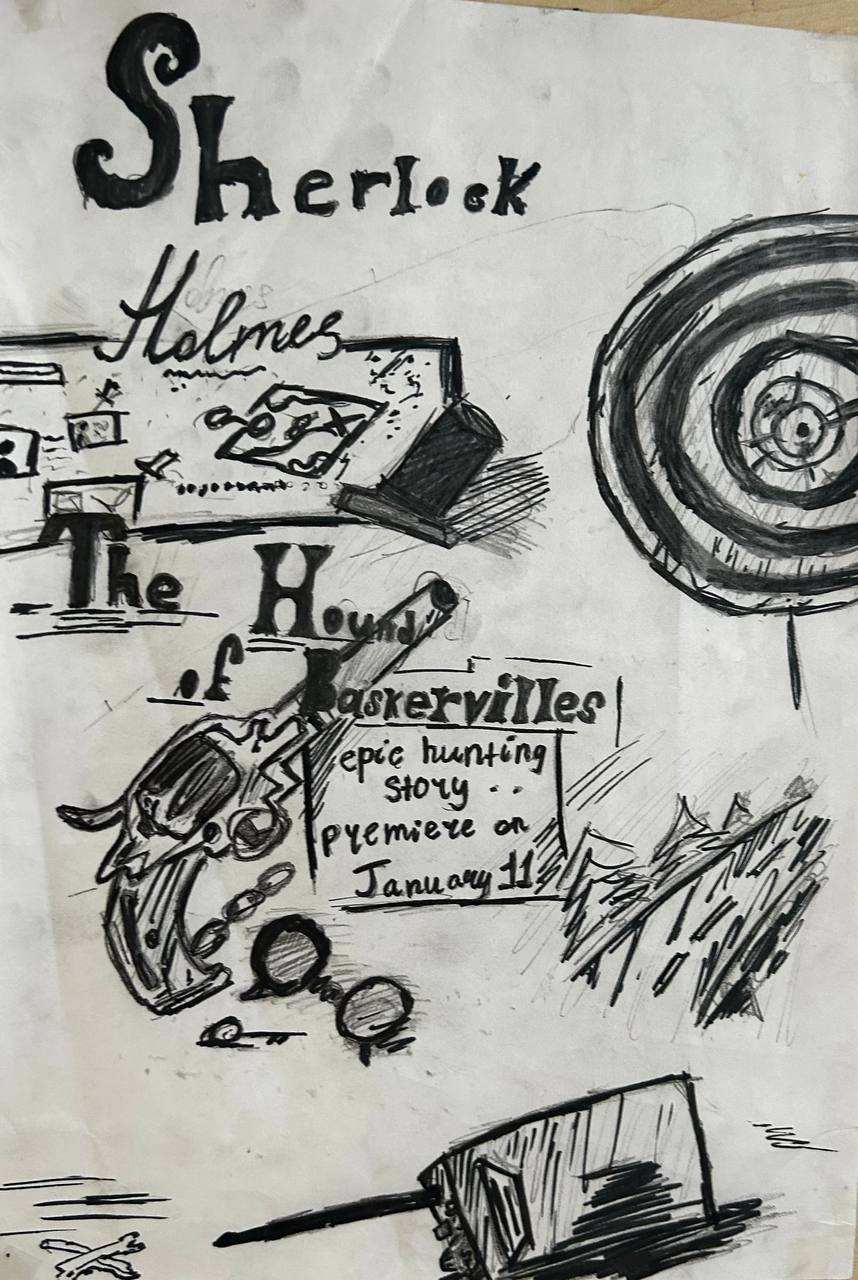 Sherlock
Holmes
The Hound
of Baskervilles
epic hunting
story ..
premiere on
January 11